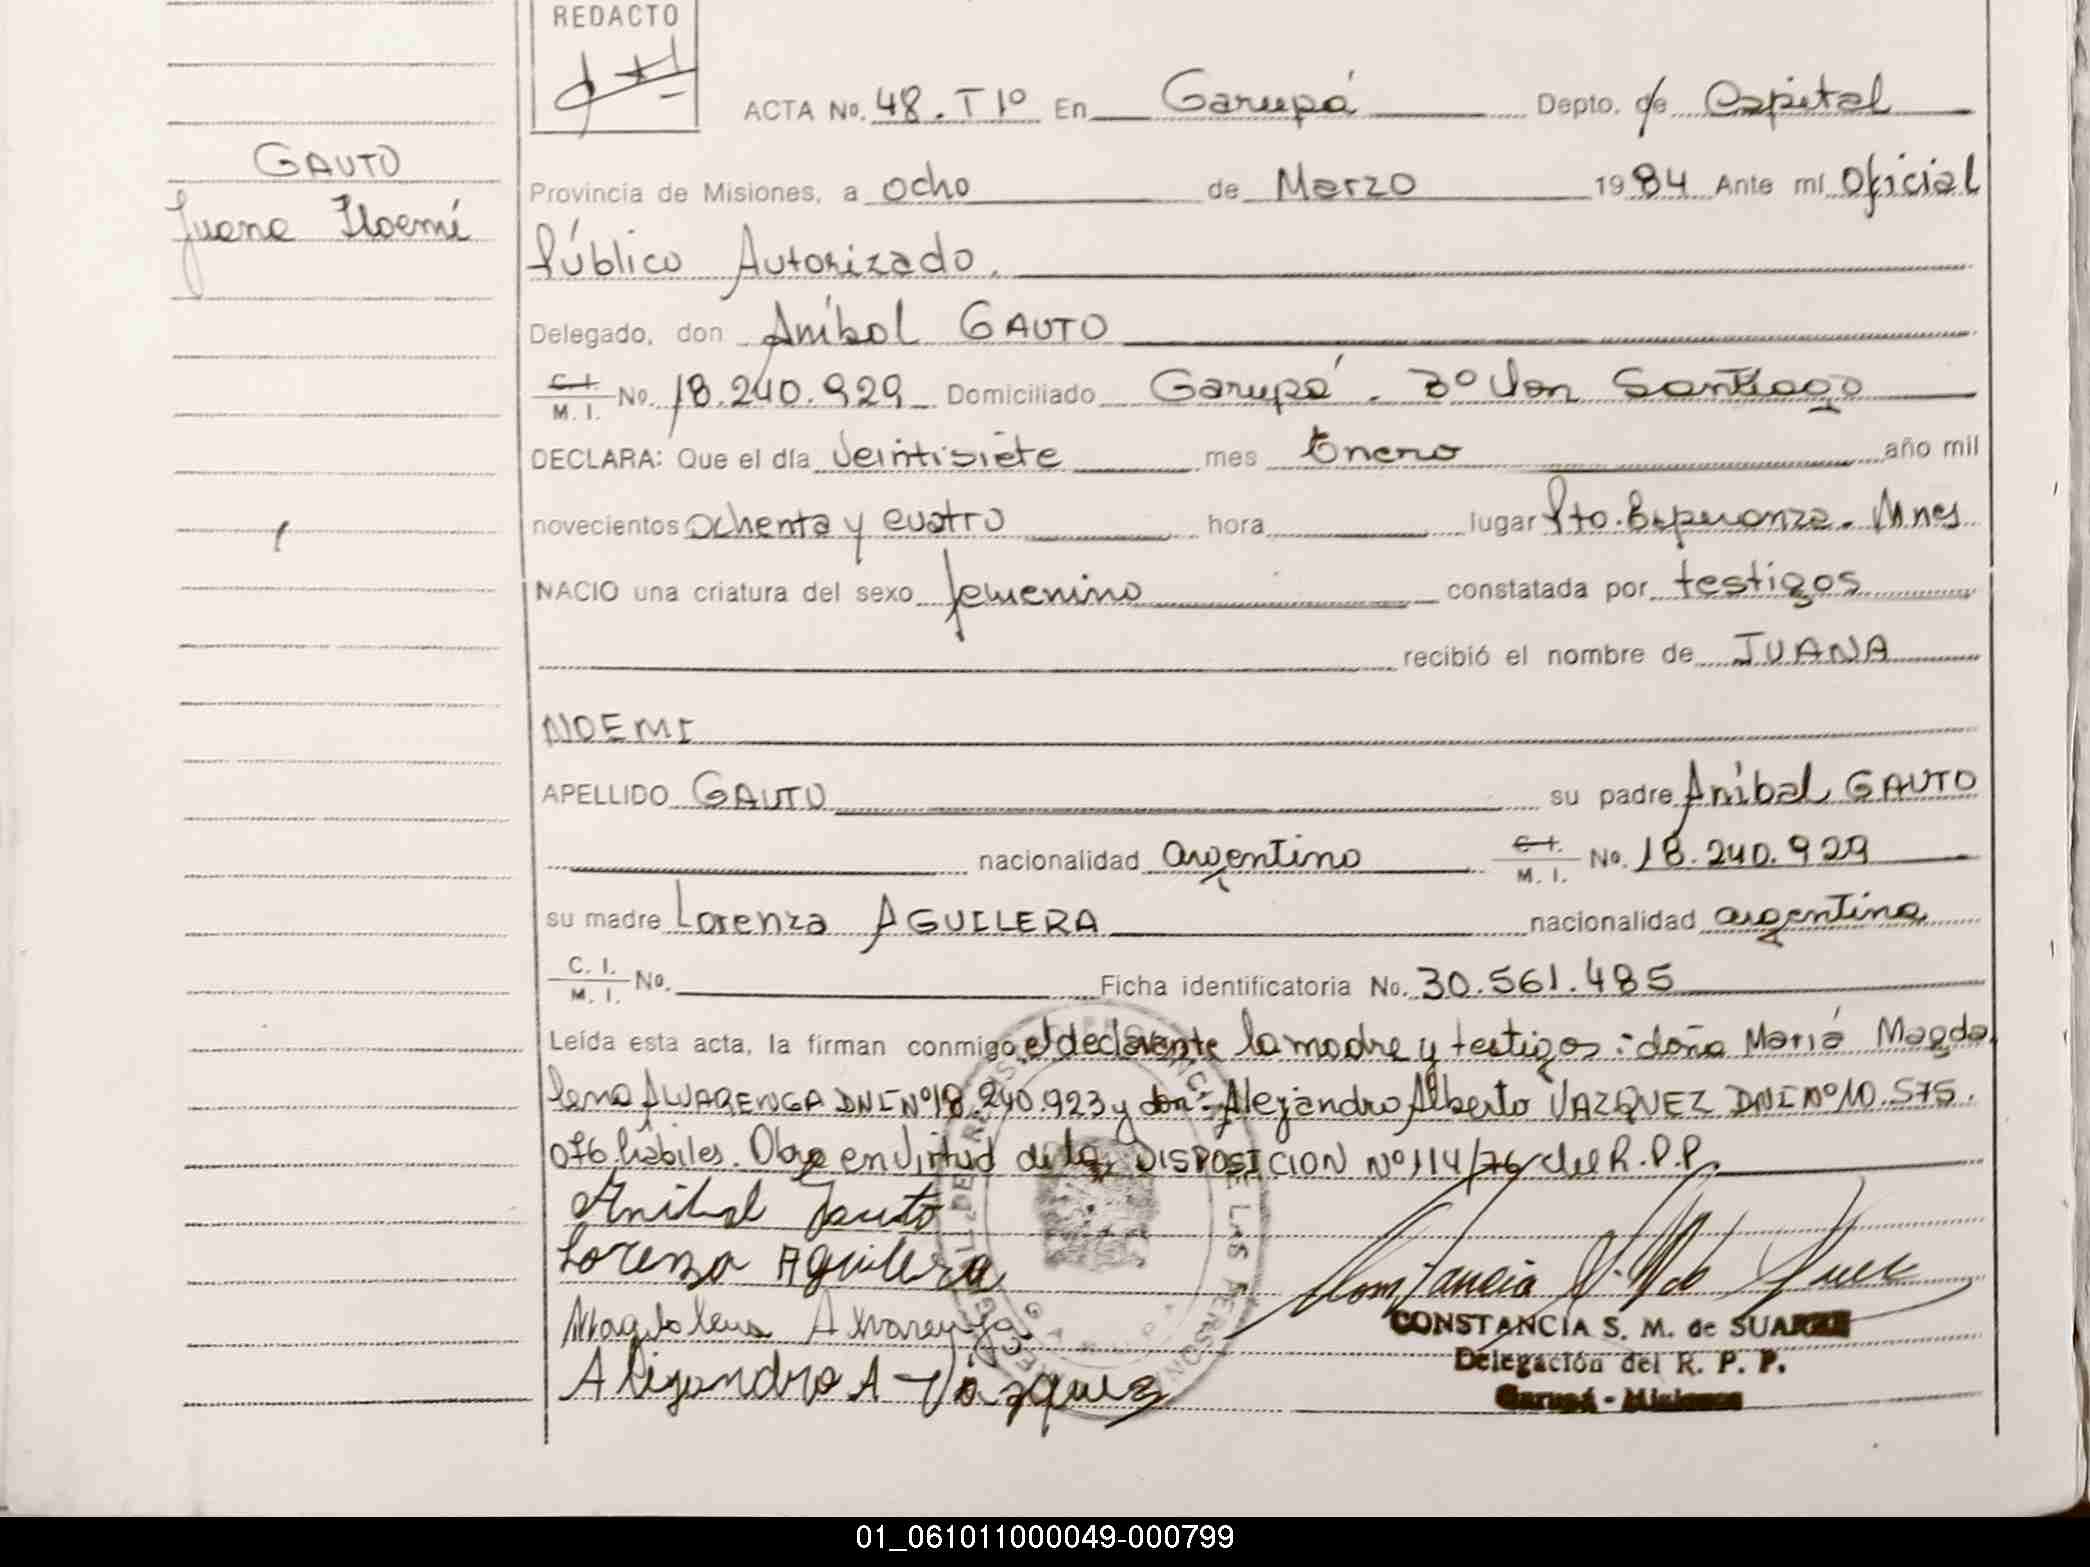 REDACTO
ACTA No. 48. T 1º En Garupá Depto. de Capital
GAUTO
Juana Noemí
Provincia de Misiones, a ocho de Marzo 1984 Ante mí Oficial
Público Autorizado.
Delegado, don Aníbal GAUTO
C. I. M. I. No. 18.240.929 Domiciliado Garupá. Bº Von Santiago
DECLARA: Que el día veintisiete mes Enero año mil
novecientos ochenta y cuatro hora lugar Pto. Esperanza. Mnes
NACIO una criatura del sexo femenino constatada por testigos
recibió el nombre de JUANA
NOEMI
APELLIDO GAUTO su padre Aníbal GAUTO
nacionalidad argentino C. I. M. I. No. 18.240.929
su madre Lorenza AGUILERA nacionalidad argentina
C. I. M. I. No. Ficha identificatoria No. 30.561.485
Leída esta acta, la firman conmigo, el declarante la madre y testigos: doña María Magda
lena ALVARENGA DNI Nº 18.240.923 y don: Alejandro Alberto VAZQUEZ DNI Nº 10.575.
076. hábiles. Obro en virtud de la DISPOSICION Nº 114/76 del R.P.P.
Anibal Gauto
Lorenza Aguilera
Magdalena Alvarenga
Alejandro A Vazquez
CONSTANCIA S. M. de SUAREZ
Delegación del R. P. P.
Garupá - Misiones
01_061011000049-000799